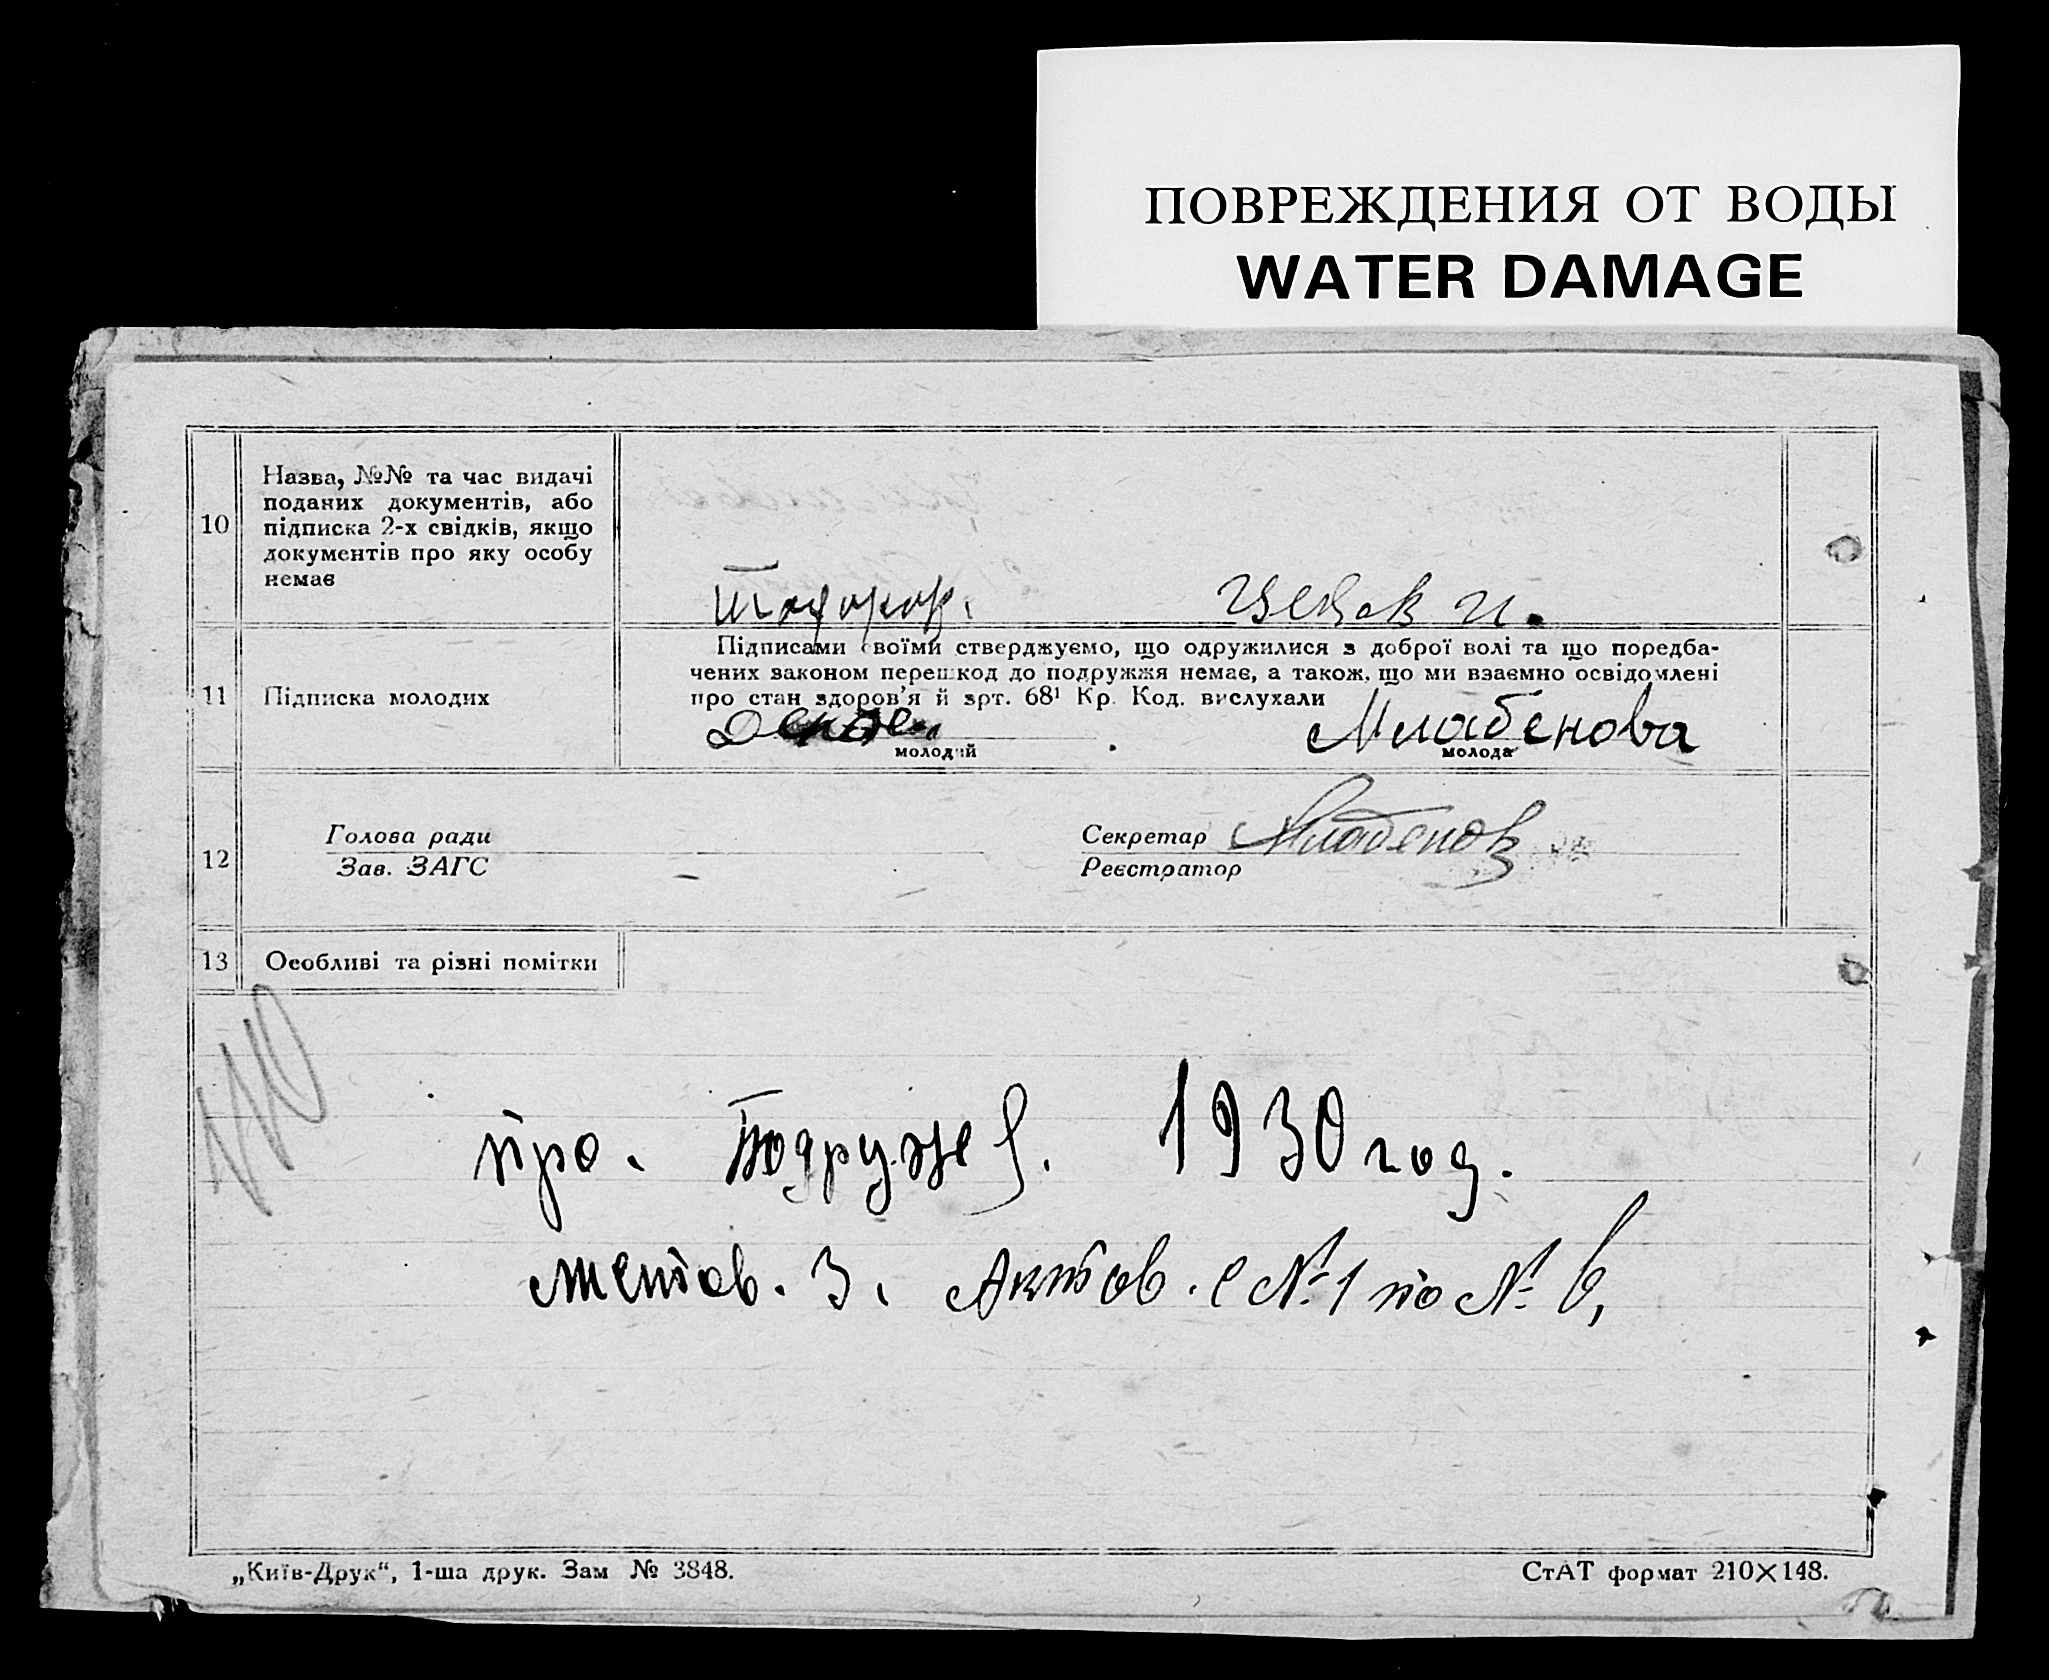 ПОВРЕЖДЕНИЯ ОТ ВОДЫ
WATER DAMAGE
10
Назва, №№ та час видачі
поданих документів, або
підписка 2-х свідків, якщо
документів про яку особу
немає
Тодоров.
11
Підписка молодих
Підписами своїми стверджуємо, що одружилися з доброї волі та що поредба-
чених законом перешкод до подружжя немає, а також, що ми взаємно освідомлені
про стан здоров'я й зрт. 68¹ Кр. Код. вислухали
Младенова
молодий
молода
12
Голова ради
Зав. ЗАГС
Секретар Младенов
Реєстратор
13
Особливі та різні помітки
110
про. Подруже. 1930 год.
З. Актов. с № 1 по № 6,
„Київ-Друк“, 1-ша друк. Зам № 3848.
СтАТ формат 210×148.